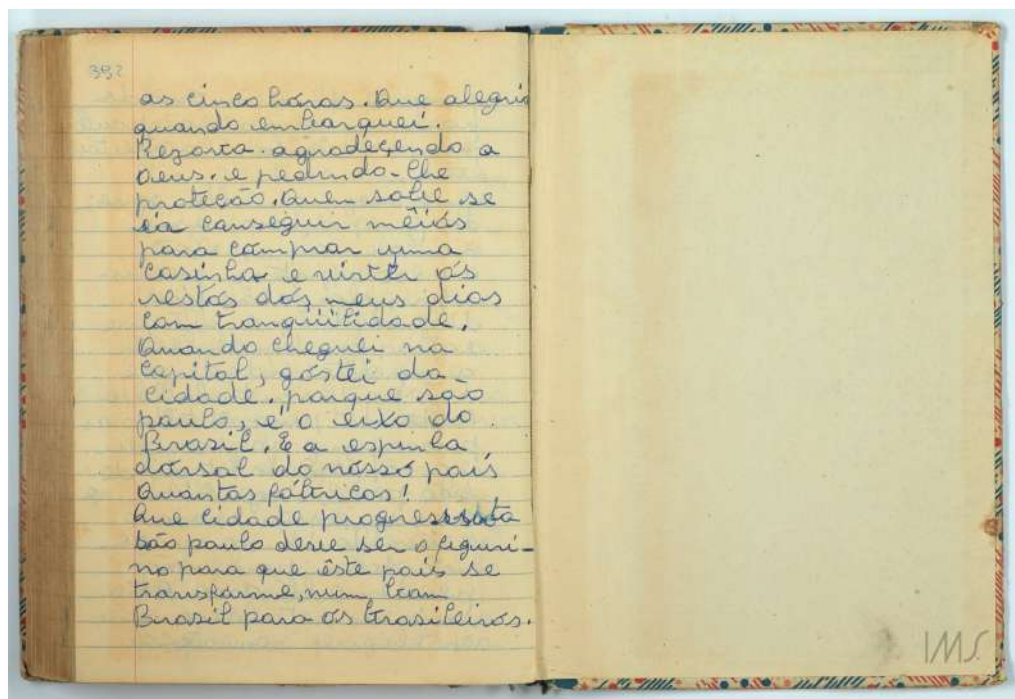 392
as cinco hóras. Que alegria
quando embarquei.
Rezava. agradeçendo a
Deus. e pedindo-lhe
proteção. Quem sabe se
ia conseguir mêiós
para cómprar uma
casinha e viver ós
restós dós meus dias
com tranqüilidade.
Quando cheguei na
Capital, góstei da
cidade. porque são
paulo, é o eixo do
Brasil. É a espinha
dórsal do nósso país
Quantas fábricas!
Que cidade progressista
São paulo deve ser o figuri-
no para que êste país se
transfórme, num bom
Brasil para ós brasileirós.
IMS